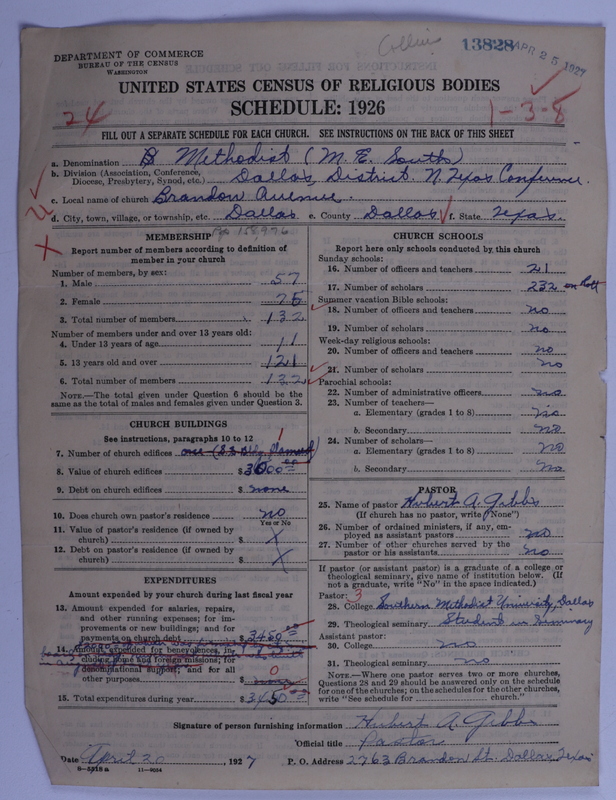 Collin
13828 APR 25 1927
DEPARTMENT OF COMMERCE
BUREAU OF THE CENSUS
WASHINGTON
UNITED STATES CENSUS OF RELIGIOUS BODIES
SCHEDULE: 1926
24
1-3-8
FILL OUT A SEPARATE SCHEDULE FOR EACH CHURCH. SEE INSTRUCTIONS ON THE BACK OF THIS SHEET
a. Denomination Methodist (M. E. South)
b. Division (Association, Conference, Diocese, Presbytery, Synod, etc.) Dallas, District. N. Texas Conference.
c. Local name of church Brandon Avenue.
d. City, town, village, or township, etc. Dallas e. County Dallas f. State Texas.
Pop 158976
MEMBERSHIP
Report number of members according to definition of member in your church
Number of members, by sex:
1. Male 57
2. Female 75
3. Total number of members 132
Number of members under and over 13 years old:
4. Under 13 years of age 11
5. 13 years old and over 121
6. Total number of members 132
NOTE.—The total given under Question 6 should be the same as the total of males and females given under Question 3.
CHURCH BUILDINGS
See instructions, paragraphs 10 to 12
7. Number of church edifices one 1
8. Value of church edifices $3000.00
9. Debt on church edifices $ none
10. Does church own pastor's residence no
Yes or No
11. Value of pastor's residence (if owned by church) $ X
12. Debt on pastor's residence (if owned by church) $ X
EXPENDITURES
Amount expended by your church during last fiscal year
13. Amount expended for salaries, repairs, and other running expenses; for improvements or new buildings; and for payments on church debt $3450.00
14. Amount expended for benevolences, including home and foreign missions; for denominational support; and for all other purposes $ none 0
15. Total expenditures during year $3450.00
CHURCH SCHOOLS
Report here only schools conducted by this church
Sunday schools:
16. Number of officers and teachers 21
17. Number of scholars 232 on Roll
Summer vacation Bible schools:
18. Number of officers and teachers no
19. Number of scholars no
Week-day religious schools:
20. Number of officers and teachers no
21. Number of scholars no
Parochial schools:
22. Number of administrative officers no
23. Number of teachers—
a. Elementary (grades 1 to 8) no
b. Secondary no
24. Number of scholars—
a. Elementary (grades 1 to 8) no
b. Secondary no
PASTOR
25. Name of pastor Hubert A. Gibbs
(If church has no pastor, write "None")
26. Number of ordained ministers, if any, employed as assistant pastors no
27. Number of other churches served by the pastor or his assistants no
If pastor (or assistant pastor) is a graduate of a college or theological seminary, give name of institution below. (If not a graduate, write "No" in the space indicated.)
Pastor: 3
28. College Southern Methodist University, Dallas
29. Theological seminary Student in Seminary
Assistant pastor:
30. College no
31. Theological seminary no
NOTE.—Where one pastor serves two or more churches, Questions 28 and 29 should be answered only on the schedule for one of the churches; on the schedules for the other churches, write "See schedule for church."
Signature of person furnishing information Hubert A. Gibbs
Official title Pastor
Date April 20, 1927 P. O. Address 2763 Brandon St. Dallas, Texas
8-5318a 11-9024